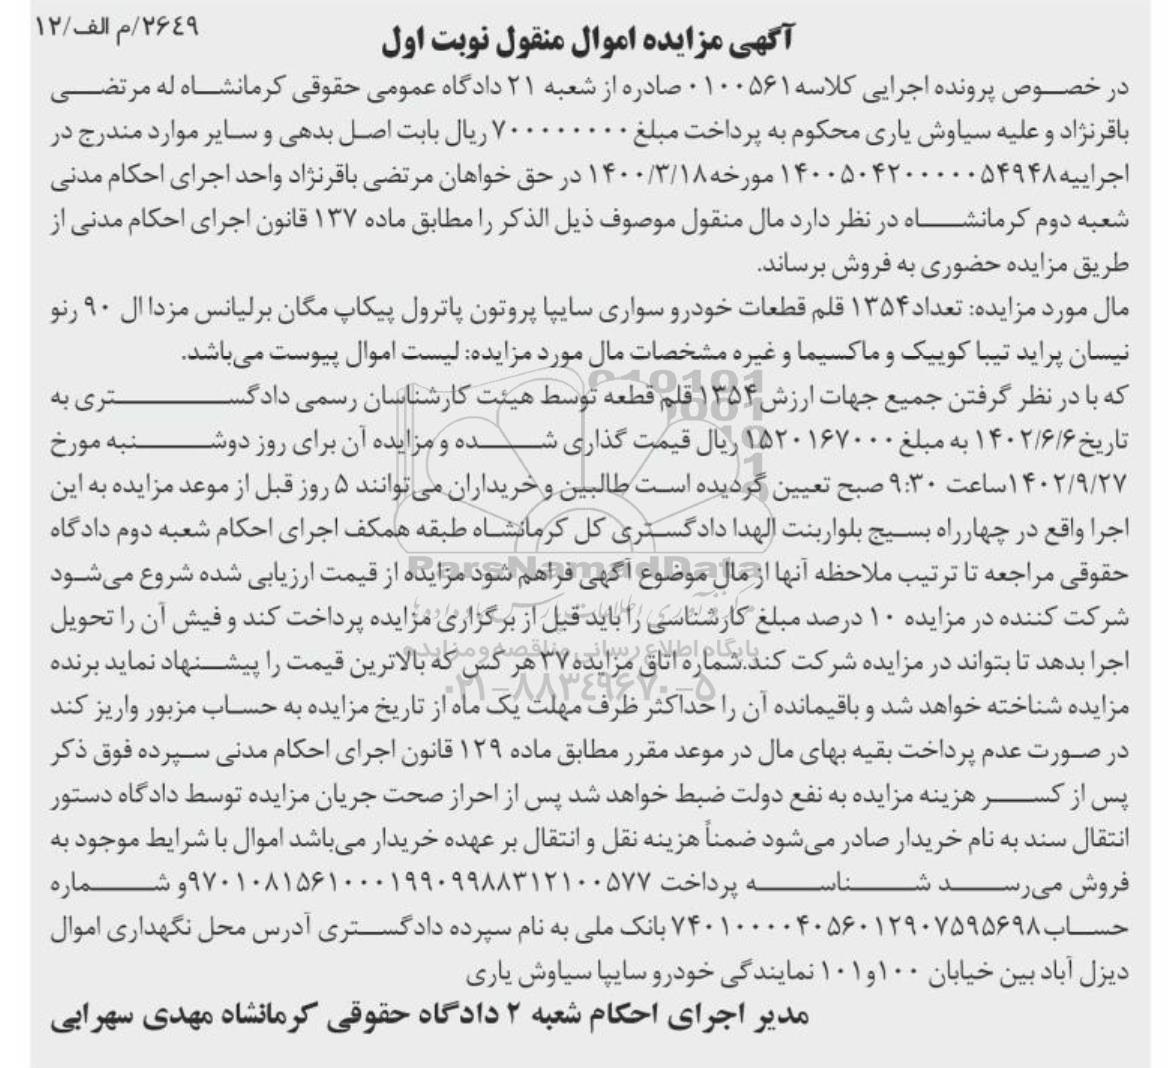 ۲۶٤۹/م الف/۱۲
آگهی مزایده اموال منقول نوبت اول
در خصوص پرونده اجرایی کلاسه ۰۱۰۰۵۶۱ صادره از شعبه ۲۱ دادگاه عمومی حقوقی کرمانشاه له مرتضی
باقرنژاد و علیه سیاوش یاری محکوم به پرداخت مبلغ ۷۰۰۰۰۰۰۰۰ ریال بابت اصل بدهی و سایر موارد مندرج در
اجراییه ۱۴۰۰۵۰۴۲۰۰۰۰۰۵۴۹۴۸ مورخه ۱۴۰۰/۳/۱۸ در حق خواهان مرتضی باقرنژاد واحد اجرای احکام مدنی
شعبه دوم کرمانشاه در نظر دارد مال منقول موصوف ذیل الذکر را مطابق ماده ۱۳۷ قانون اجرای احکام مدنی از
طریق مزایده حضوری به فروش برساند.
مال مورد مزایده: تعداد ۱۳۵۴ قلم قطعات خودرو سواری سایپا پروتون پاترول پیکاپ مگان برلیانس مزدا ال ۹۰ رنو
نیسان پراید تیبا کوییک و ماکسیما و غیره مشخصات مال مورد مزایده: لیست اموال پیوست می‌باشد.
که با در نظر گرفتن جمیع جهات ارزش ۱۳۵۴ قلم قطعه توسط هیئت کارشناسان رسمی دادگستری به
تاریخ ۱۴۰۲/۶/۶ به مبلغ ۱۵۲۰۱۶۷۰۰۰ ریال قیمت گذاری شده و مزایده آن برای روز دوشنبه مورخ
۱۴۰۲/۹/۲۷ساعت ۹:۳۰ صبح تعیین گردیده است طالبین و خریداران می‌توانند ۵ روز قبل از موعد مزایده به این
اجرا واقع در چهارراه بسیج بلواربنت الهدا دادگستری کل کرمانشاه طبقه همکف اجرای احکام شعبه دوم دادگاه
حقوقی مراجعه تا ترتیب ملاحظه آنها از مال موضوع آگهی فراهم شود مزایده از قیمت ارزیابی شده شروع می‌شود
شرکت کننده در مزایده ۱۰ درصد مبلغ کارشناسی را باید قبل از برگزاری مزایده پرداخت کند و فیش آن را تحویل
اجرا بدهد تا بتواند در مزایده شرکت کند.شماره اتاق مزایده ۳۷ هر کس که بالاترین قیمت را پیشنهاد نماید برنده
مزایده شناخته خواهد شد و باقیمانده آن را حداکثر ظرف مهلت یک ماه از تاریخ مزایده به حساب مزبور واریز کند
در صورت عدم پرداخت بقیه بهای مال در موعد مقرر مطابق ماده ۱۲۹ قانون اجرای احکام مدنی سپرده فوق ذکر
پس از کسر هزینه مزایده به نفع دولت ضبط خواهد شد پس از احراز صحت جریان مزایده توسط دادگاه دستور
انتقال سند به نام خریدار صادر می‌شود ضمناً هزینه نقل و انتقال بر عهده خریدار می‌باشد اموال با شرایط موجود به
فروش می‌رسد شناسه پرداخت ۹۷۰۱۰۸۱۵۶۱۰۰۰۱۹۹۰۹۹۸۸۳۱۲۱۰۰۵۷۷و شماره
حساب ۷۴۰۱۰۰۰۰۴۰۵۶۰۱۲۹۰۷۵۹۵۶۹۸ بانک ملی به نام سپرده دادگستری آدرس محل نگهداری اموال
دیزل آباد بین خیابان ۱۰۰و۱۰۱ نمایندگی خودرو سایپا سیاوش یاری
مدیر اجرای احکام شعبه ۲ دادگاه حقوقی کرمانشاه مهدی سهرابی
ParsNamadData
پایگاه اطلاع رسانی مناقصه و مزایده
۰۲۱-۸۸۳٤۹۶۷۰-۵